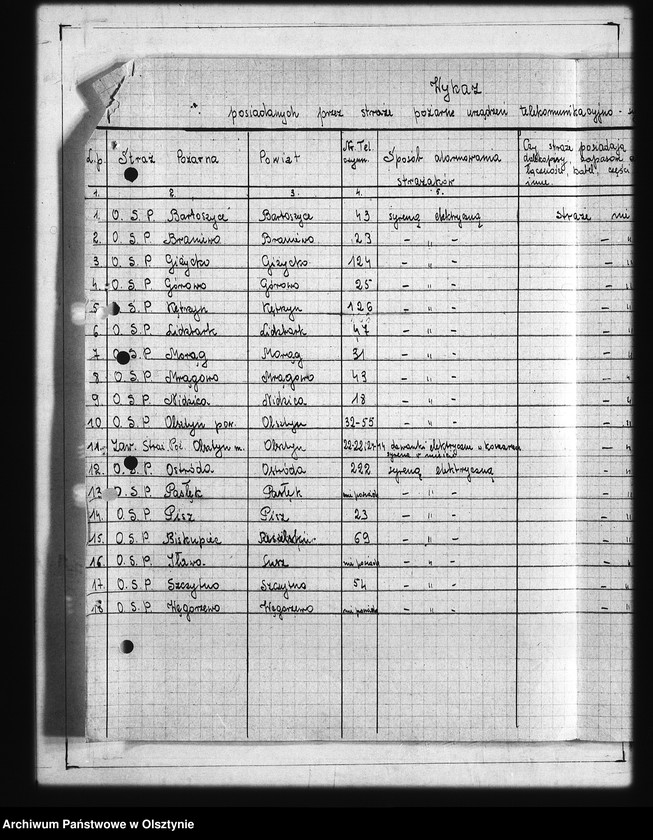 Wykaz
posiadanych przez straże pożarne urządzeń telekomunikacyjno -
L.p. Straż Pożarna Powiat Nr. Tel. Sposób alarmowania strażaków Czy straże posiadają
łączności, kabel, części
inne.
1. 2. 3. 4. 5.
1. O. S. P. Bartoszyce Bartoszyce 43 syreną elektryczną straże nie
2. O. S. P. Braniewo Braniewo 23 - " - - "
3 O. S. P. Giżycko Giżycko 124 - " -
4. O. S. P. Górowo Górowo 25 - " -
5 O. S. P. Kętrzyn Kętrzyn 126 - " - - "
6 O. S. P. Lidzbark Lidzbark 47 - " -
7 O. S. P. Morąg Morąg 31 - " -
8 O. S. P. Mrągowo Mrągowo 43 - " - - "
9. O. S. P. Nidzica Nidzica 18 - " - - "
10 O. S. P. Olsztyn pow. Olsztyn 32-55 - " - - "
11. Zaw. Straż Poż. Olsztyn m. Olsztyn dzwonki elektryczne w koszarach - "
syrena w mieście
12. O. S. P. Ostróda Ostróda 222 syreną elektryczną - "
13 O. S. P. Pasłęk Pasłęk nie posiada - " - - "
14. O. S. P. Pisz Pisz 23 - " - - "
15. O. S. P. Biskupiec Reszelski 69 - " - - "
16. O. S. P. Iława Susz nie posiada - " - - "
17. O. S. P. Szczytno Szczytno 54 - " - - "
18 O. S. P. Węgorzewo Węgorzewo nie posiada - " - - "
Archiwum Państwowe w Olsztynie